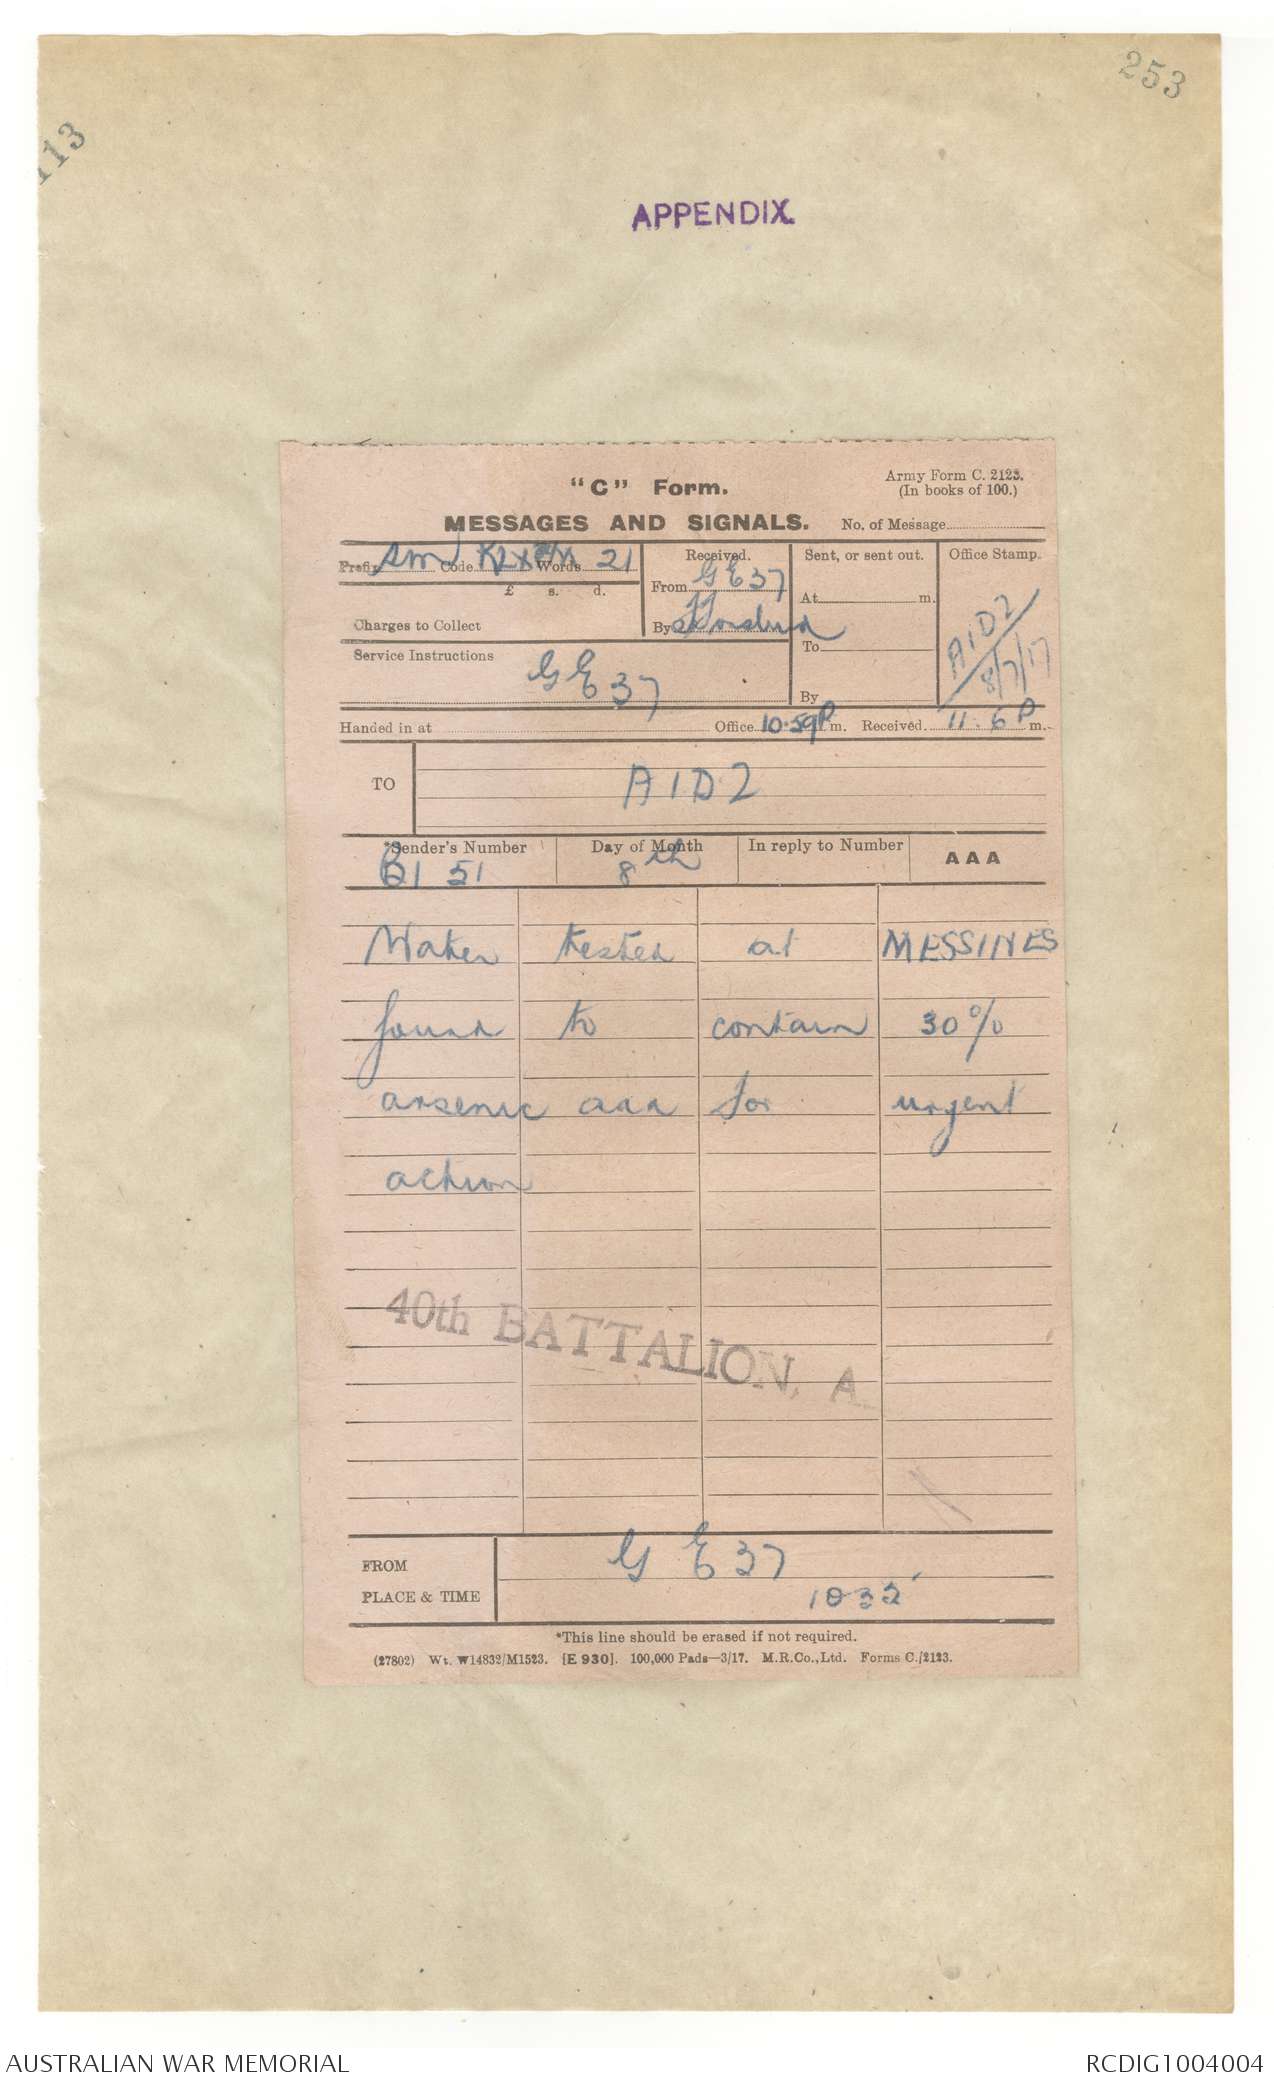 253
113
APPENDIX.
"C" Form.
Army Form C. 2123.
(In books of 100.)
MESSAGES AND SIGNALS.
No. of Message
Prefix SM Code Words 21
£ s. d.
Charges to Collect
Service Instructions
GE37
Received.
From GE37
By
Sent, or sent out.
At m.
To
By
Office Stamp.
A1D2
8/7/17
Handed in at Office 10.59P m. Received 11.6P m.
TO
A1D2
*Sender's Number Day of Month In reply to Number AAA
51 8th
Water tested at MESSINES
found to contain 30%
arsenic aaa for urgent
action
40th BATTALION, A
FROM
GE37
PLACE & TIME
1032
*This line should be erased if not required.
(27802) Wt. W14832/M1523. [E 930]. 100,000 Pads—3/17. M.R.Co.,Ltd. Forms C./2123.
AUSTRALIAN WAR MEMORIAL
RCDIG1004004